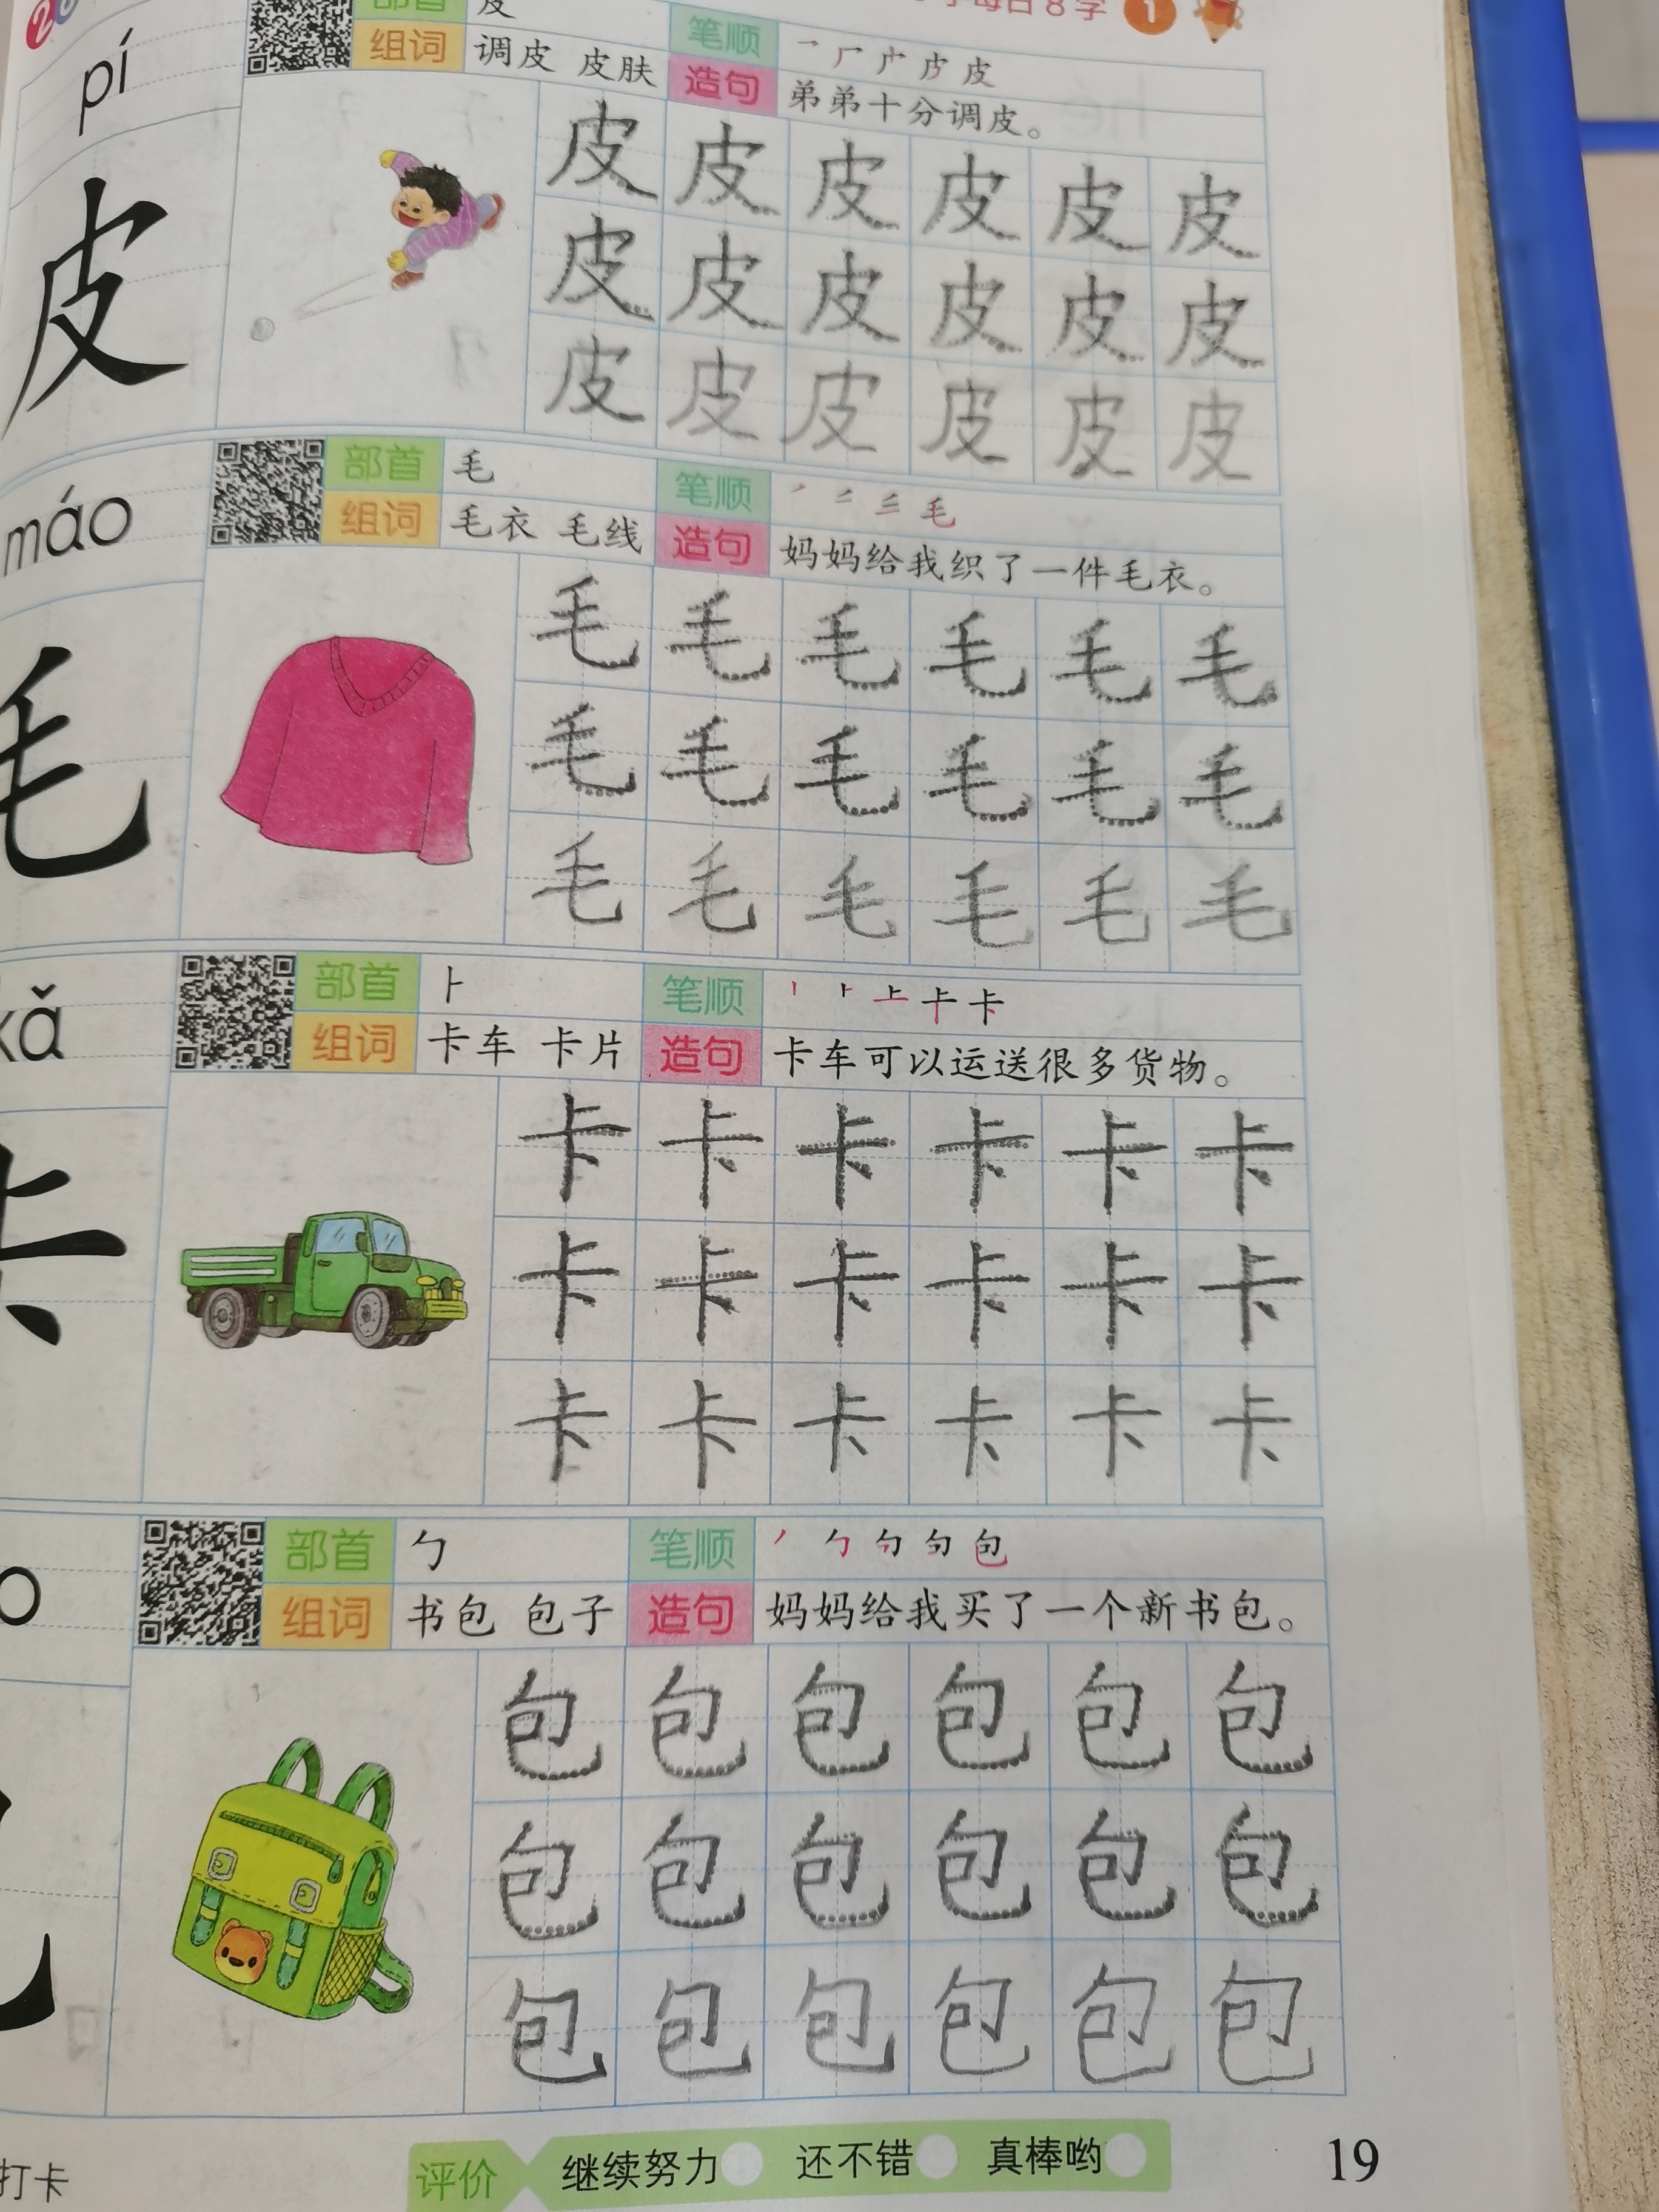 每日8字 1
pí
部首 皮 笔顺
组词 调皮 皮肤 造句 弟弟十分调皮。
皮
皮 皮 皮 皮 皮 皮
皮 皮 皮 皮 皮 皮
皮 皮 皮 皮 皮 皮
máo
部首 毛 笔顺
组词 毛衣 毛线 造句 妈妈给我织了一件毛衣。
毛
毛 毛 毛 毛 毛 毛
毛 毛 毛 毛 毛 毛
毛 毛 毛 毛 毛 毛
kǎ
部首 卜 笔顺
组词 卡车 卡片 造句 卡车可以运送很多货物。
卡
卡 卡 卡 卡 卡 卡
卡 卡 卡 卡 卡 卡
卡 卡 卡 卡 卡 卡
o
部首 勹 笔顺
组词 书包 包子 造句 妈妈给我买了一个新书包。
包 包 包 包 包 包
包 包 包 包 包 包
包 包 包 包 包 包
打卡 评价 继续努力 还不错 真棒哟 19